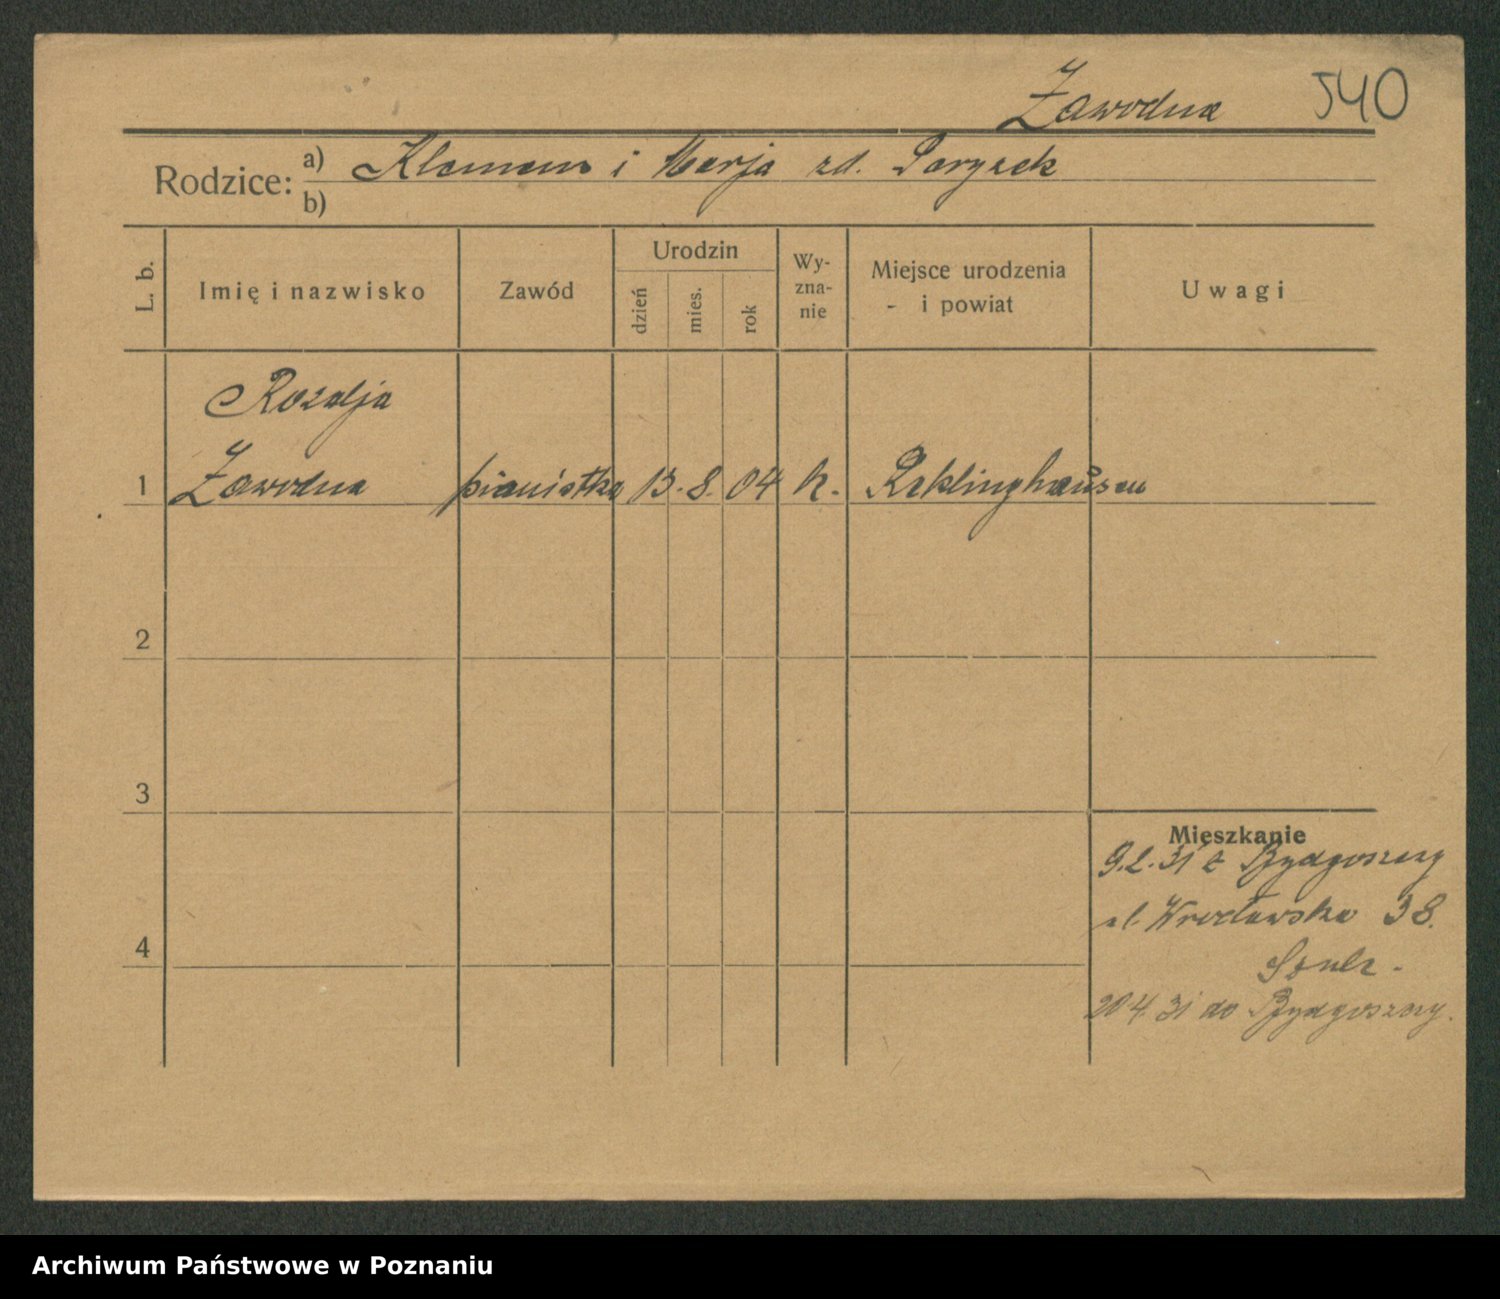 Zawodna 540
Rodzice: a) Klemens i Marja zd. Paryzek
b)
L. b. Imię i nazwisko Zawód Urodzin dzień mies. rok Wy-zna-nie Miejsce urodzenia i powiat Uwagi
Rozalja
1 Zawodna pianistka 13. 8. 04 k. Reklinghausen
2
3
Mieszkanie
9.2.31 z Bydgoszczy
ul. Wrocławska 38.
4
Szulc.
20 4. 31 do Bydgoszczy.
Archiwum Państwowe w Poznaniu